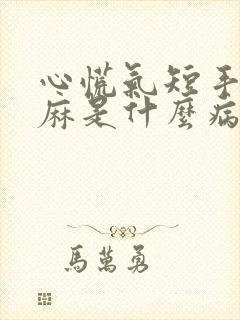 心慌氣短手
麻是什麼病
馬萬勇